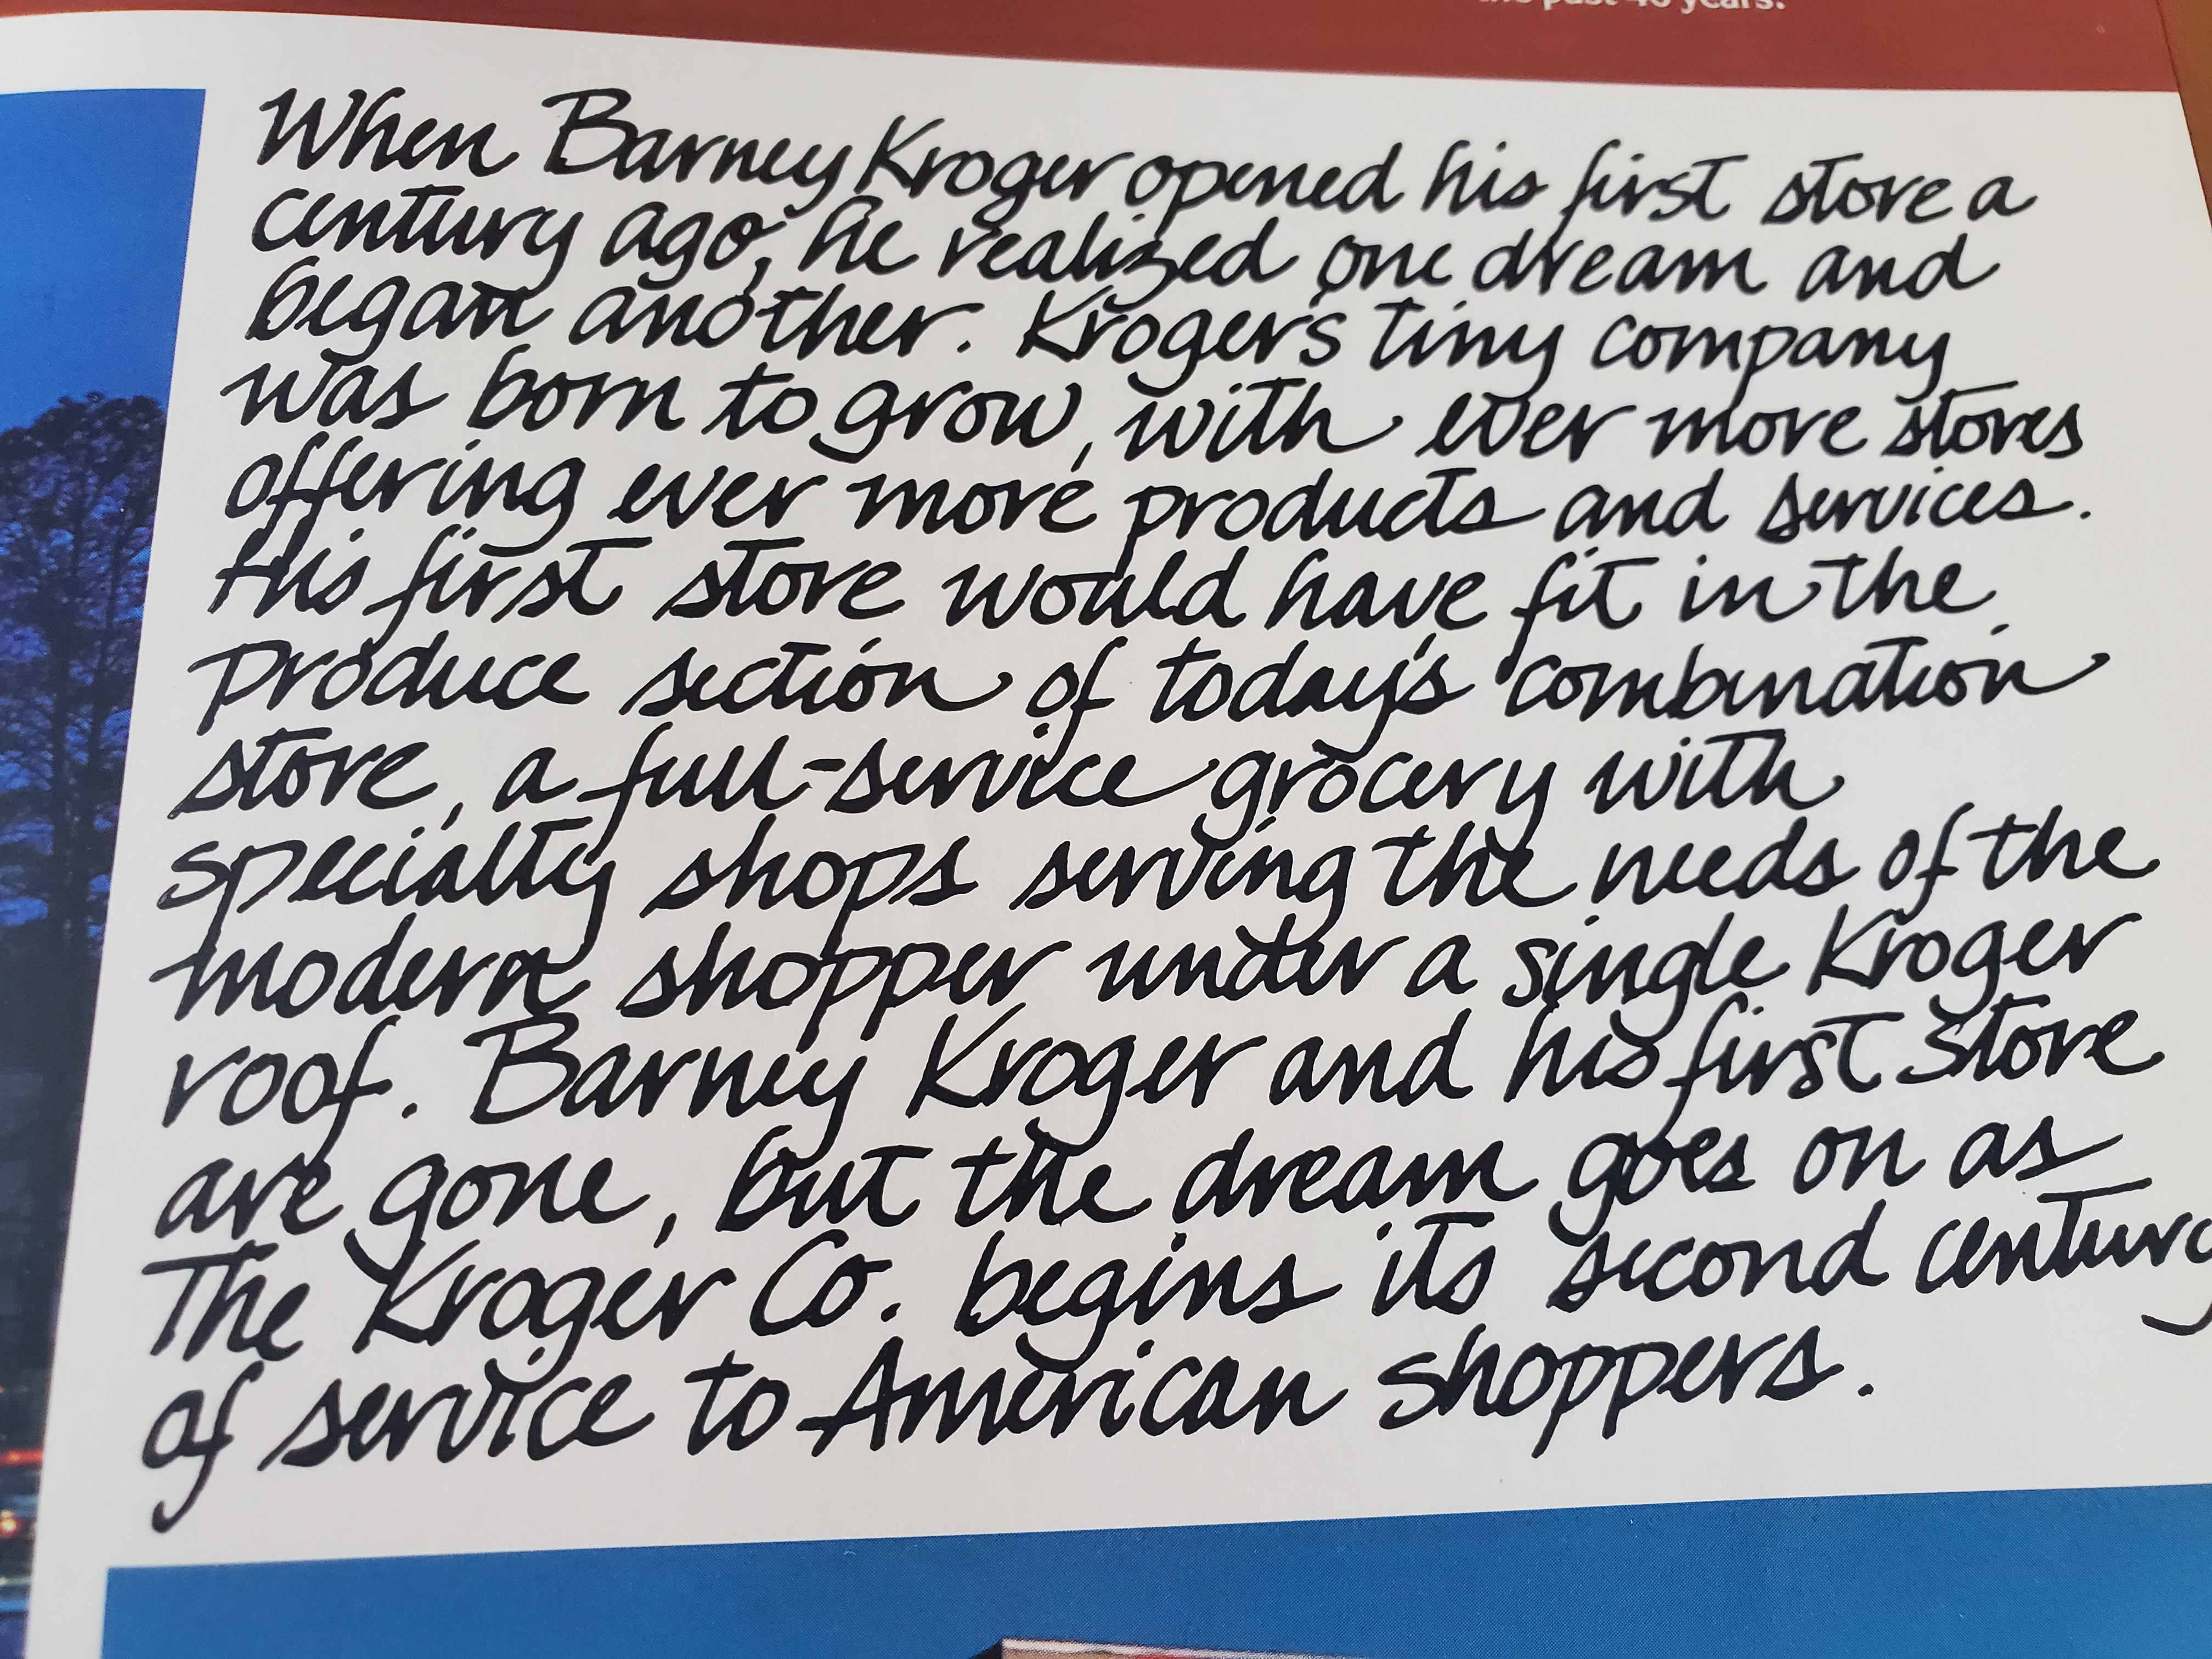 the past 40 years.
When Barney Kroger opened his first store a
century ago, he realized one dream and
began another. Kroger's tiny company
was born to grow, with ever more stores
offering ever more products and services.
His first store would have fit in the
produce section of today's combination
store, a full-service grocery with
specialty shops serving the needs of the
modern shopper under a single Kroger
roof. Barney Kroger and his first store
are gone, but the dream goes on as
The Kroger Co. begins its second century
of service to American shoppers.